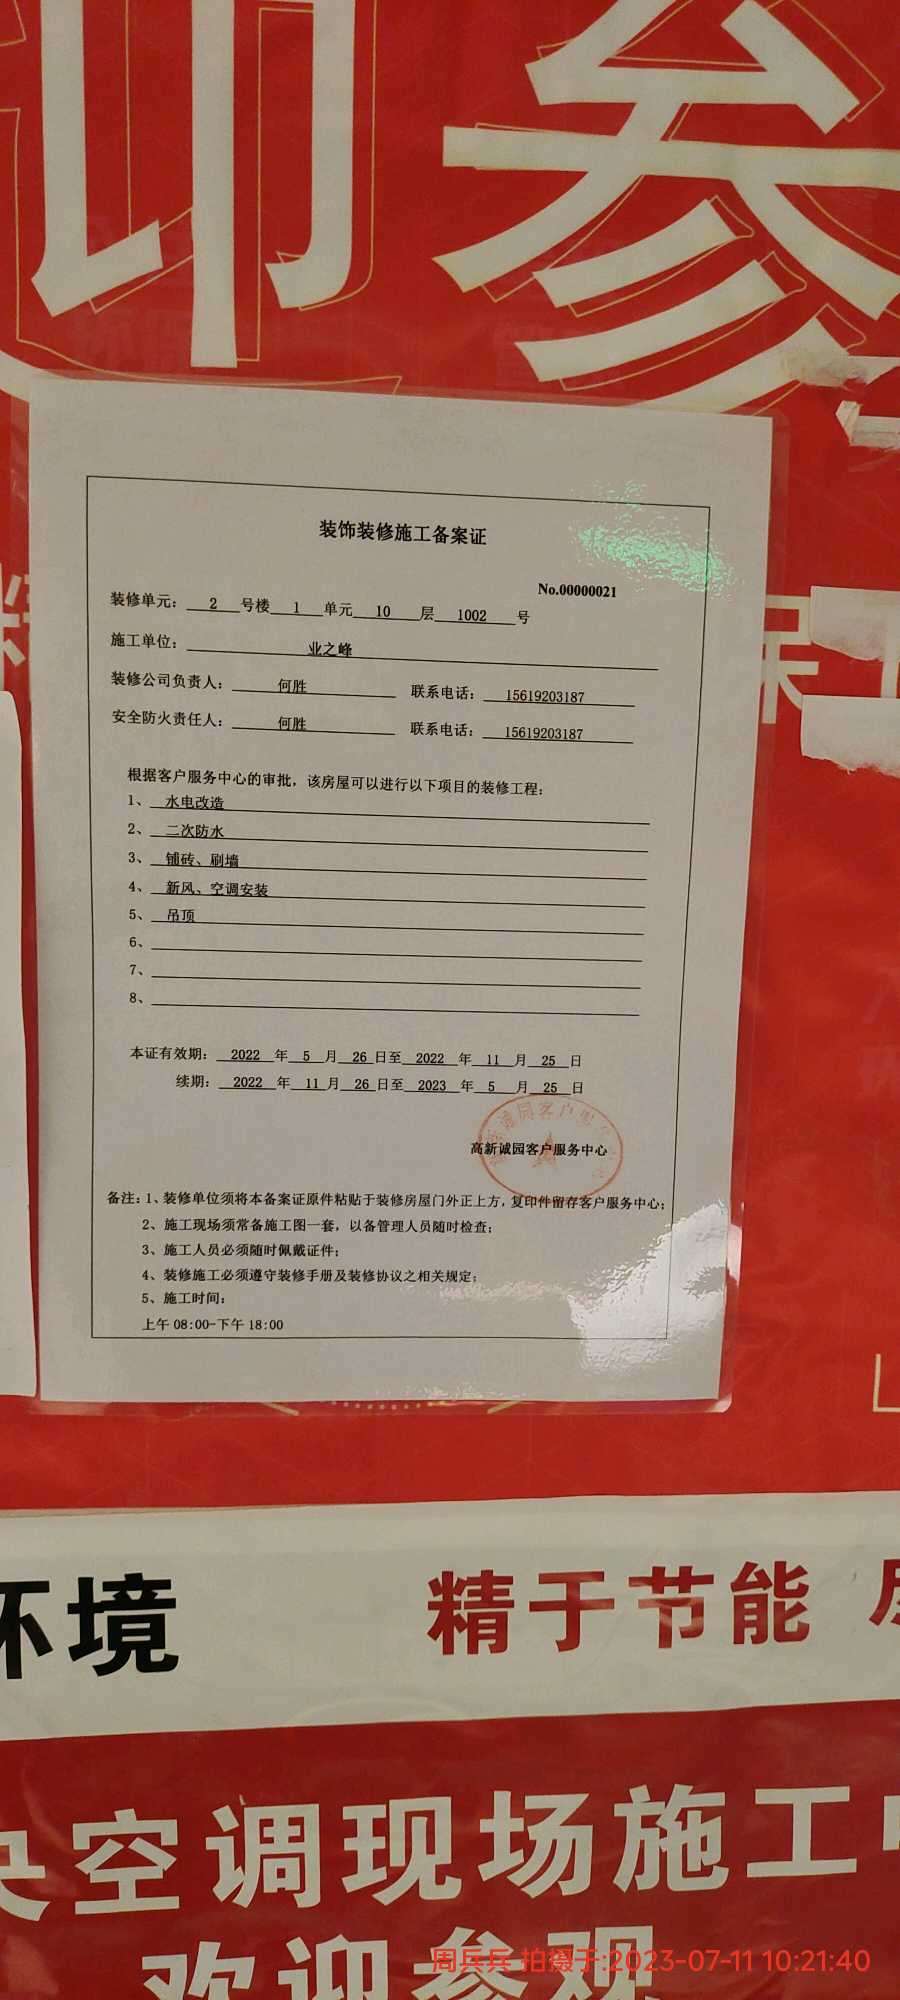 参
装饰装修施工备案证
No.00000021
装修单元： 2 号楼 1 单元 10 层 1002 号
施工单位： 业之峰
装修公司负责人： 何胜 联系电话： 15619203187
安全防火责任人： 何胜 联系电话： 15619203187
根据客户服务中心的审批，该房屋可以进行以下项目的装修工程：
1、 水电改造
2、 二次防水
3、 铺砖、刷墙
4、 新风、空调安装
5、 吊顶
6、
7、
8、
本证有效期： 2022 年 5 月 26 日至 2022 年 11 月 25 日
续期： 2022 年 11 月 26 日至 2023 年 5 月 25 日
高新诚园客户服务中心
备注：1、装修单位须将本备案证原件粘贴于装修房屋门外正上方，复印件留存客户服务中心；
2、施工现场须常备施工图一套，以备管理人员随时检查；
3、施工人员必须随时佩戴证件；
4、装修施工必须遵守装修手册及装修协议之相关规定；
5、施工时间：
上午 08:00-下午 18:00
环境 精于节能
央空调现场施工中
欢迎参观
周兵兵 拍摄于:2023-07-11 10:21:40